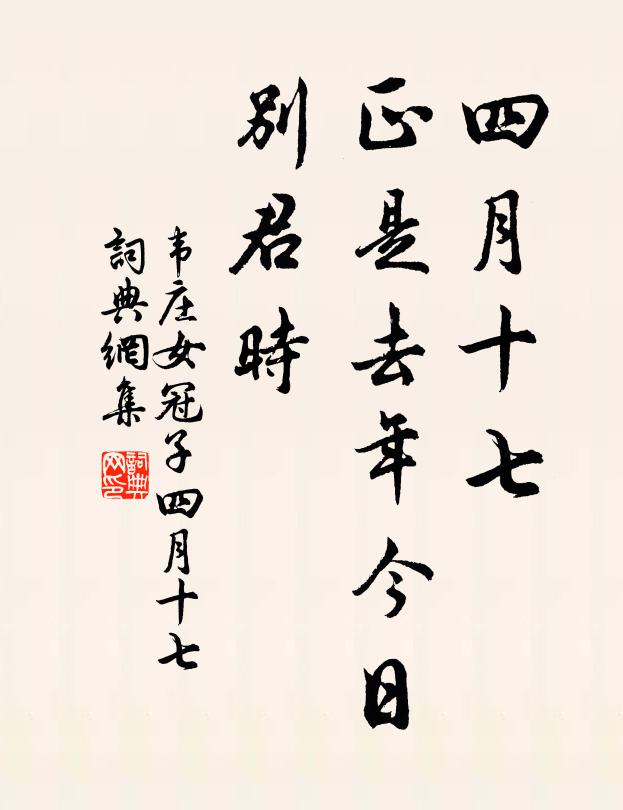 四月十七
正是去年今日
別君時
韦庄女冠子四月十七
詞典網集
詞典网印